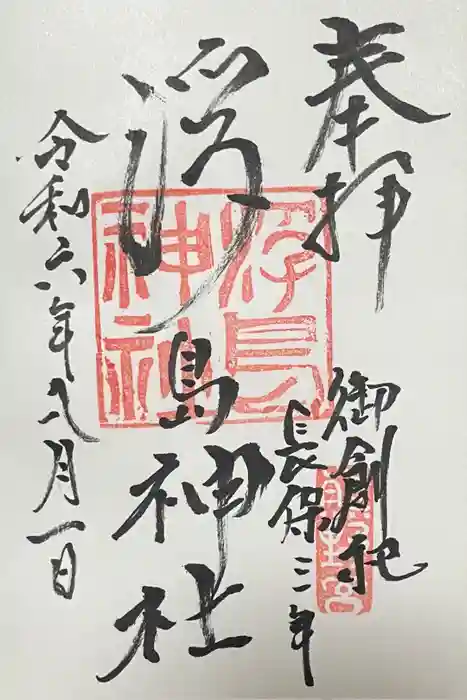 奉拝
御創祀
長保三年
浮島神社
令和六年八月一日
浮島
神社